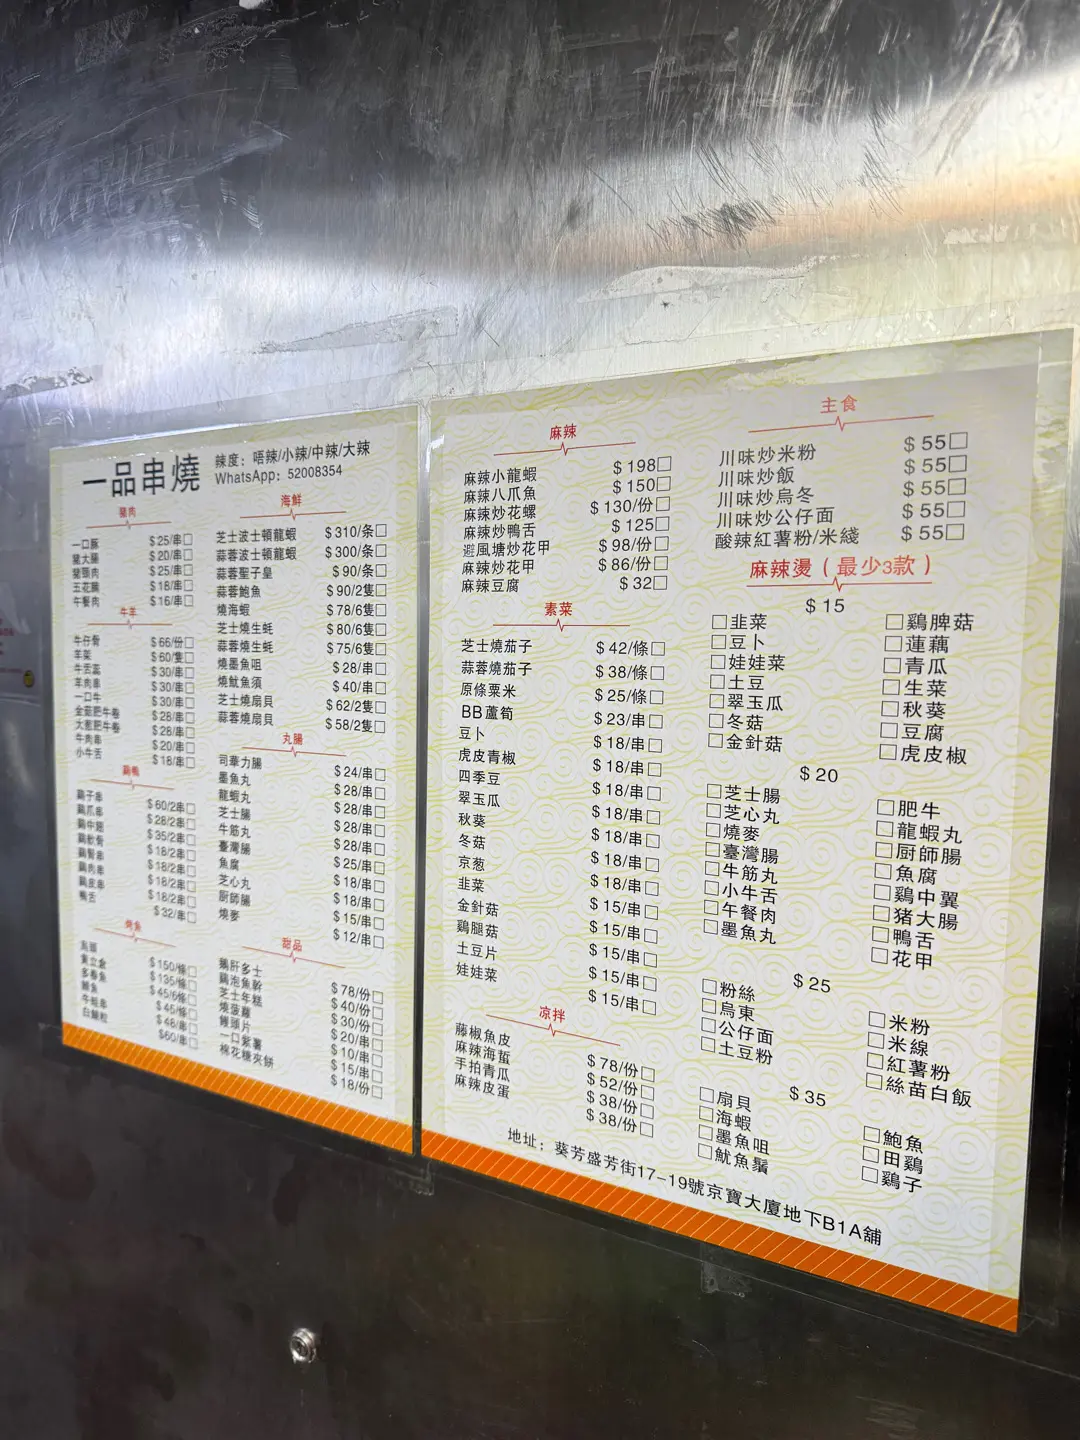 一品串燒
辣度：唔辣/小辣/中辣/大辣
WhatsApp：52008354
豬肉
一口豚 $25/串□
豬大腸 $20/串□
豬頸肉 $25/串□
五花腩 $18/串□
午餐肉 $16/串□
牛羊
牛仔骨 $66/份□
羊架 $60/隻□
牛舌蕊 $30/串□
羊肉串 $30/串□
一口牛 $30/串□
金菇肥牛卷 $28/串□
大蔥肥牛卷 $28/串□
牛肉串 $20/串□
小牛舌 $18/串□
鷄鴨
鷄子串 $60/2串□
鷄爪串 $28/2串□
鷄中翅 $35/2串□
鷄軟骨 $18/2串□
鷄腎串 $18/2串□
鷄肉串 $18/2串□
鷄皮串 $18/2串□
鴨舌 $32/串□
烤魚
烏頭 $150/條□
黃立倉 $135/條□
多春魚 $45/6條□
鯪魚 $45/條□
牛蛙串 $46/串□
白鱔粒 $60/串□
海鮮
芝士波士頓龍蝦 $310/条□
蒜蓉波士頓龍蝦 $300/条□
蒜蓉聖子皇 $90/条□
蒜蓉鮑魚 $90/2隻□
燒海蝦 $78/6隻□
芝士燒生蚝 $80/6隻□
蒜蓉燒生蚝 $75/6隻□
燒墨魚咀 $28/串□
燒魷魚須 $40/串□
芝士燒扇貝 $62/2隻□
蒜蓉燒扇貝 $58/2隻□
丸腸
司華力腸 $24/串□
墨魚丸 $28/串□
龍蝦丸 $28/串□
芝士腸 $28/串□
牛筋丸 $28/串□
臺灣腸 $25/串□
魚腐 $18/串□
芝心丸 $18/串□
廚師腸 $15/串□
燒麥 $12/串□
甜品
鵝肝多士 $78/份□
鷄泡魚幹 $40/份□
芝士年糕 $30/份□
燒菠蘿 $20/串□
饅頭片 $10/串□
一口紫薯 $15/串□
棉花糖夾餅 $18/份□
麻辣
麻辣小龍蝦 $198□
麻辣八爪魚 $150□
麻辣炒花螺 $130/份□
麻辣炒鴨舌 $125□
避風塘炒花甲 $98/份□
麻辣炒花甲 $86/份□
麻辣豆腐 $32□
素菜
芝士燒茄子 $42/條□
蒜蓉燒茄子 $38/條□
原條粟米 $25/條□
BB蘆筍 $23/串□
豆卜 $18/串□
虎皮青椒 $18/串□
四季豆 $18/串□
翠玉瓜 $18/串□
秋葵 $18/串□
冬菇 $18/串□
京葱 $18/串□
韭菜 $15/串□
金針菇 $15/串□
鷄腿菇 $15/串□
土豆片 $15/串□
娃娃菜 $15/串□
凉拌
藤椒魚皮 $78/份□
麻辣海蜇 $52/份□
手拍青瓜 $38/份□
麻辣皮蛋 $38/份□
主食
川味炒米粉 $55□
川味炒飯 $55□
川味炒烏冬 $55□
川味炒公仔面 $55□
酸辣紅薯粉/米綫 $55□
麻辣燙（最少3款）
$15
□韭菜 □鷄脾菇
□豆卜 □蓮藕
□娃娃菜 □青瓜
□土豆 □生菜
□翠玉瓜 □秋葵
□冬菇 □豆腐
□金針菇 □虎皮椒
$20
□芝士腸 □肥牛
□芝心丸 □龍蝦丸
□燒麥 □厨師腸
□臺灣腸 □魚腐
□牛筋丸 □鷄中翼
□小牛舌 □猪大腸
□午餐肉 □鴨舌
□墨魚丸 □花甲
$25
□粉絲 □米粉
□烏東 □米線
□公仔面 □紅薯粉
□土豆粉 □絲苗白飯
$35
□扇貝 □鮑魚
□海蝦 □田鷄
□墨魚咀 □鷄子
□魷魚鬚
地址：葵芳盛芳街17-19號京寶大廈地下B1A舖